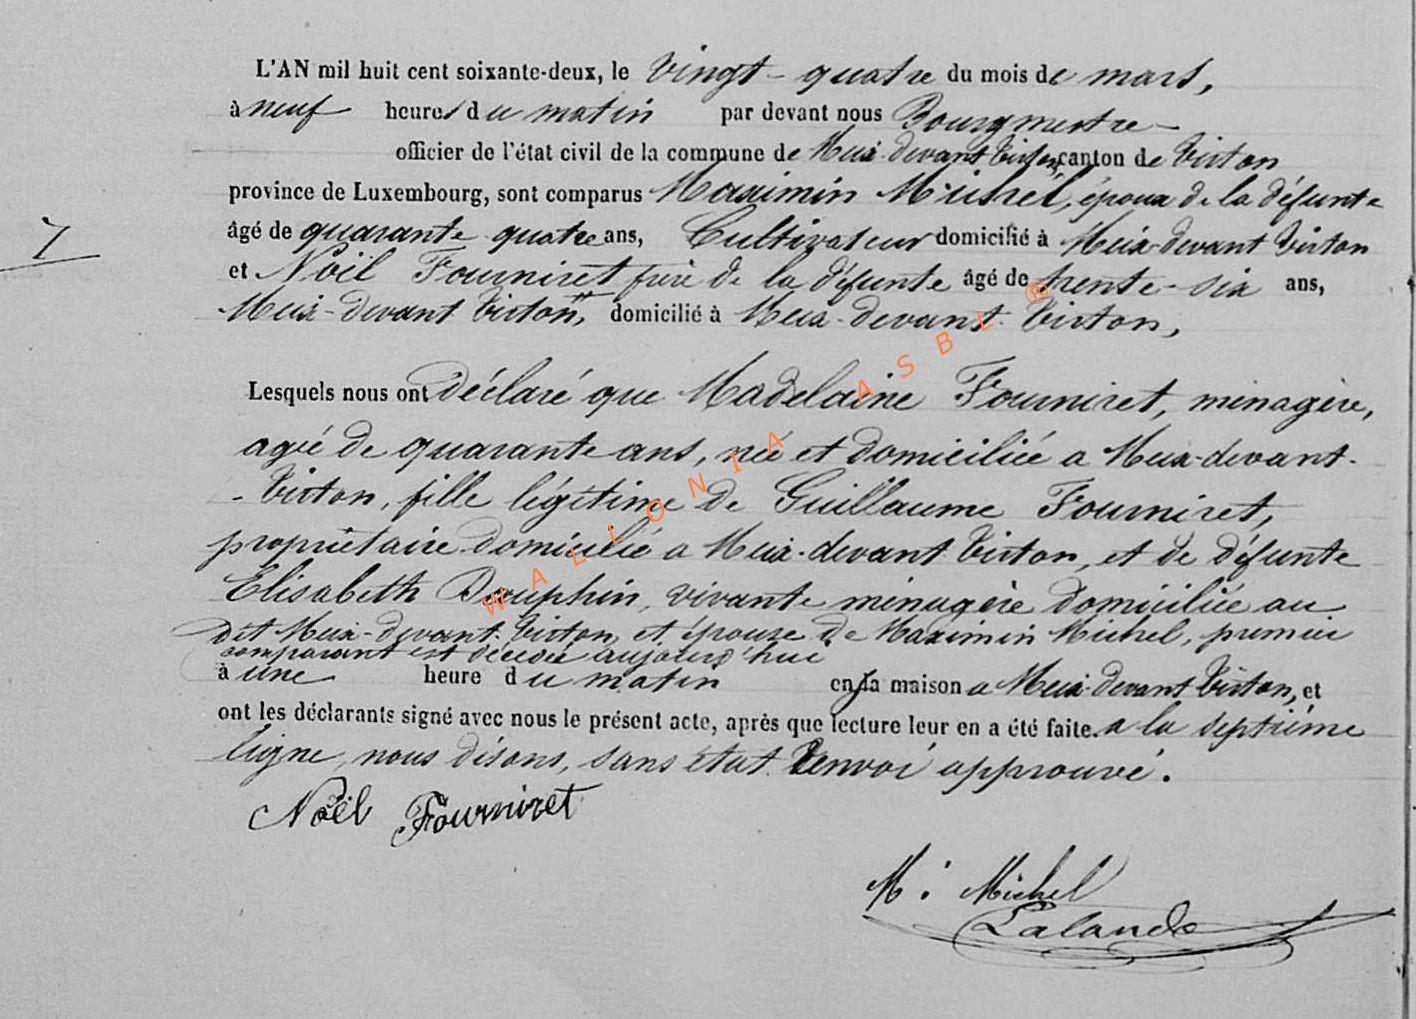 L'AN mil huit cent soixante-deux, le vingt-quatre du mois de mars,
à neuf heures du matin par devant nous Bourgmestre
officier de l'état civil de la commune de Meix-devant Virton, canton de Virton
province de Luxembourg, sont comparus Maximin Michel, époux de la défunte
âgé de quarante quatre ans, Cultivateur domicilié à Meix-devant Virton
7
et Noël Fourniret frère de la défunte âgé de trente-six ans,
Meix-devant Virton, domicilié à Meix-devant Virton,
Lesquels nous ont déclaré que Madelaine Fourniret, ménagère,
agée de quarante ans, née et domiciliée a Meix-devant-
-Virton, fille légitime de Guillaume Fourniret,
propriétaire domicilié a Meix-devant Virton, et de défunte
Elisabeth Dauphin, vivante ménagère domiciliée au
dit Meix-devant-Virton et épouse de Maximin Michel, premier
comparant est décédée aujourd'hui
à une heure du matin en sa maison a Meix-devant Virton, et
ont les déclarants signé avec nous le présent acte, après que lecture leur en a été faite. a la septième
ligne, nous disons, sans état. Renvoi approuvé.
Noël Fourniret
M. Michel
Lalande
WALLONIA ASBL ®